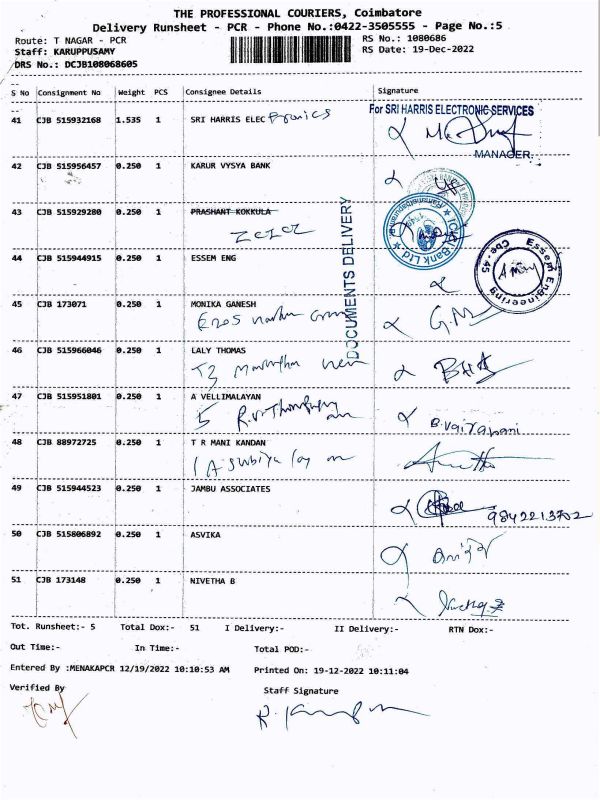 THE PROFESSIONAL COURIERS, Coimbatore
Delivery Runsheet - PCR - Phone No.:0422-3505555 - Page No.:5
Route: T NAGAR - PCR
RS No.: 1080686
Staff: KARUPPUSAMY
RS Date: 19-Dec-2022
DRS No.: DCJB108068605
S No Consignment No Weight PCS Consignee Details Signature
41 CJB 515932168 1.535 1 SRI HARRIS ELECTronics
For SRI HARRIS ELECTRONIC SERVICES
MANAGER
42 CJB 515956457 0.250 1 KARUR VYSYA BANK
43 CJB 515929280 0.250 1 PRASHANT KOKKULA
ICICI Bank Ltd
DOCUMENTS DELIVERY
44 CJB 515944915 0.250 1 ESSEM ENG
Essem Engineering Cbe - 45
45 CJB 173071 0.250 1 MONIKA GANESH
G.M
46 CJB 515966046 0.250 1 LALY THOMAS
47 CJB 515951801 0.250 1 A VELLIMALAYAN
5
B.vairamani
48 CJB 88972725 0.250 1 T R MANI KANDAN
49 CJB 515944523 0.250 1 JAMBU ASSOCIATES
9842213702
50 CJB 515806892 0.250 1 ASVIKA
51 CJB 173148 0.250 1 NIVETHA B
Tot. Runsheet:- 5 Total Dox:- 51 I Delivery:- II Delivery:- RTN Dox:-
Out Time:- In Time:- Total POD:-
Entered By :MENAKAPCR 12/19/2022 10:10:53 AM Printed On: 19-12-2022 10:11:04
Verified By Staff Signature